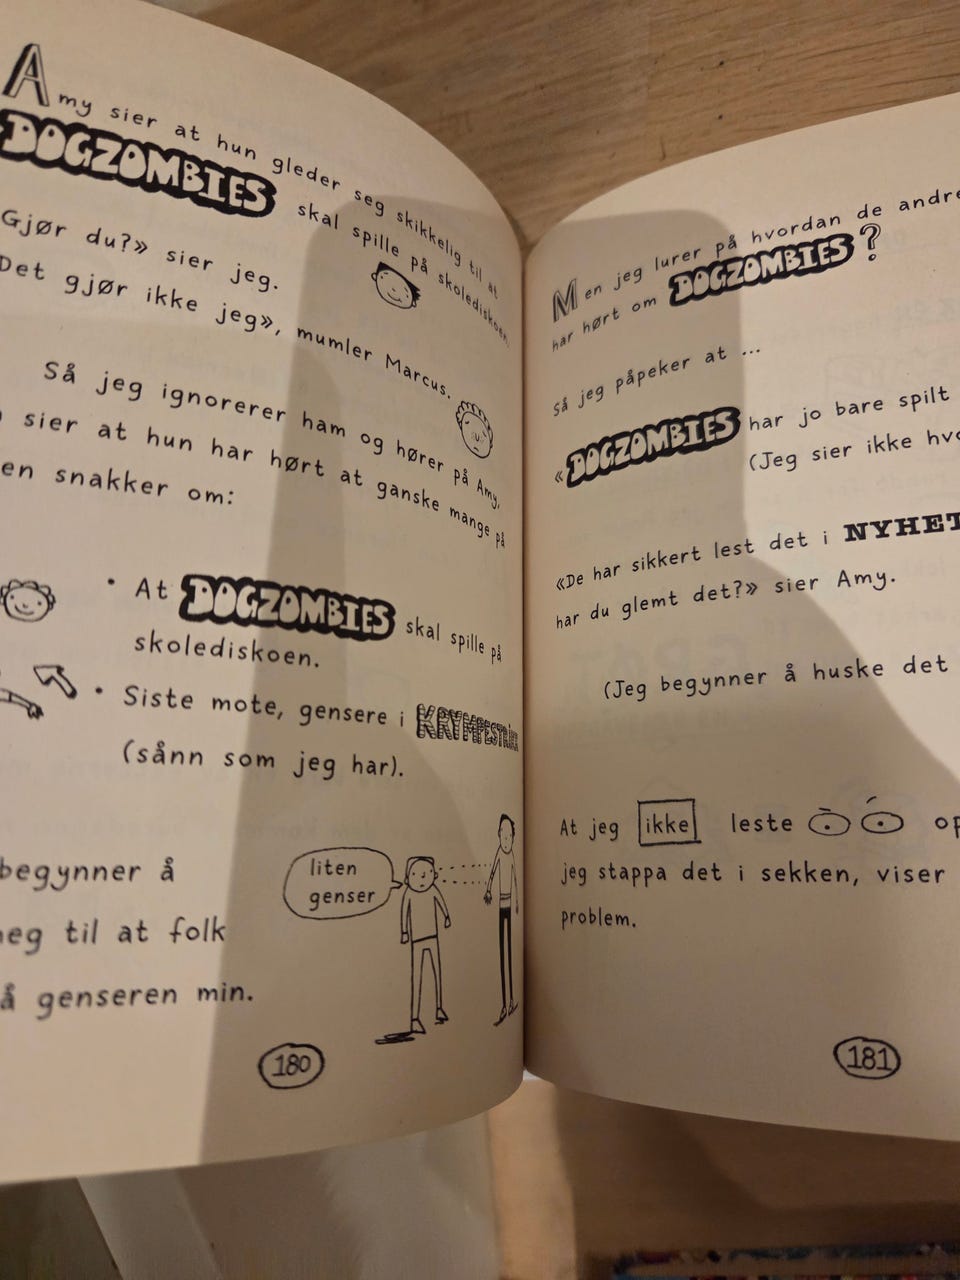 Amy sier at hun gleder seg skikkelig til at
DOGZOMBIES skal spille på skolediskoen.
Gjør du?» sier jeg.
Det gjør ikke jeg», mumler Marcus.
Så jeg ignorerer ham og hører på Amy,
sier at hun har hørt at ganske mange på
en snakker om:
• At DOGZOMBIES skal spille på
skolediskoen.
• Siste mote, gensere i
(sånn som jeg har).
begynner å
meg til at folk
på genseren min.
liten
genser
180
Men jeg lurer på hvordan de andre
har hørt om DOGZOMBIES?
Så jeg påpeker at ...
«DOGZOMBIES har jo bare spilt
(Jeg sier ikke
«De har sikkert lest det i
har du glemt det?» sier Amy.
(Jeg begynner å huske det
At jeg ikke leste
jeg stappa det i sekken, viser
problem.
181